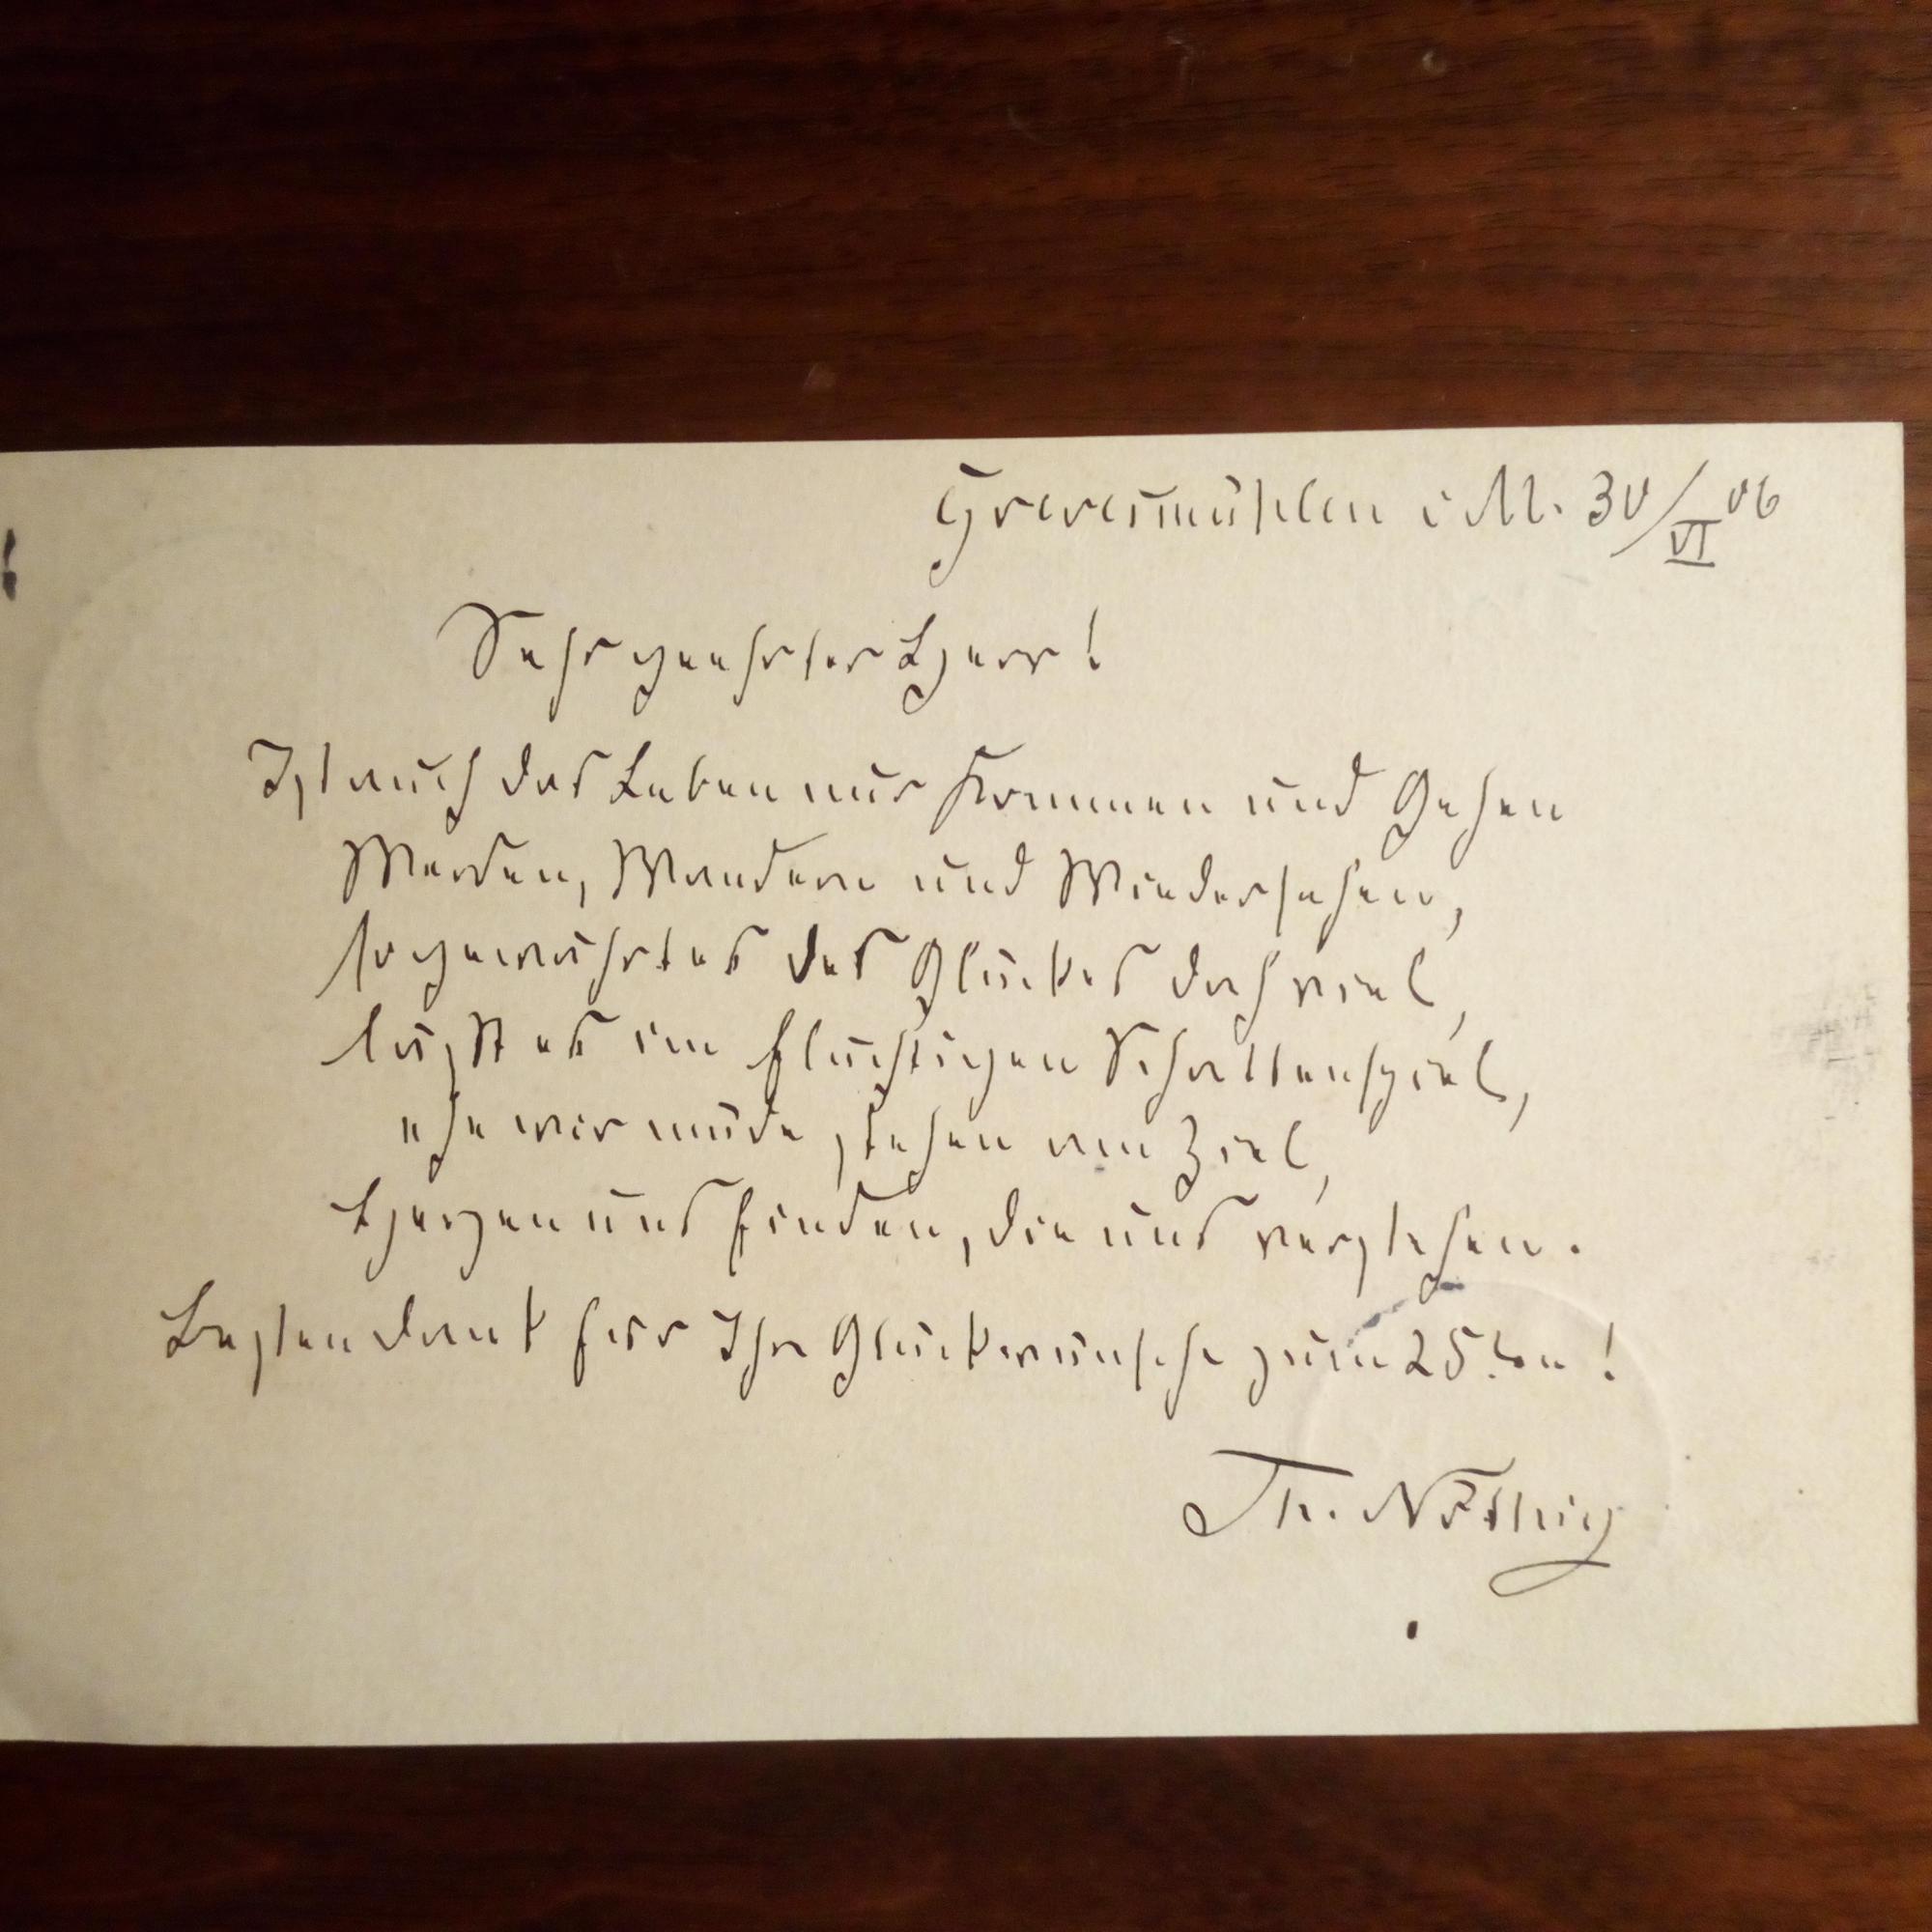 Grevesmühlen i M. 30/VI 06
Sehr geehrter Herr!
Ist auch das Leben nur Kommen und Gehen
Werden, Wandern und Wiedersehen,
so gewährt es des Glückes doch viel,
läßt es im flüchtigen Schattenspiel,
ehe wir müde stehen am Ziel,
Herzen uns finden, die uns verstehen.
Besten Dank für Ihre Glückwünsche zum 25. ten!
Th. Nöthig